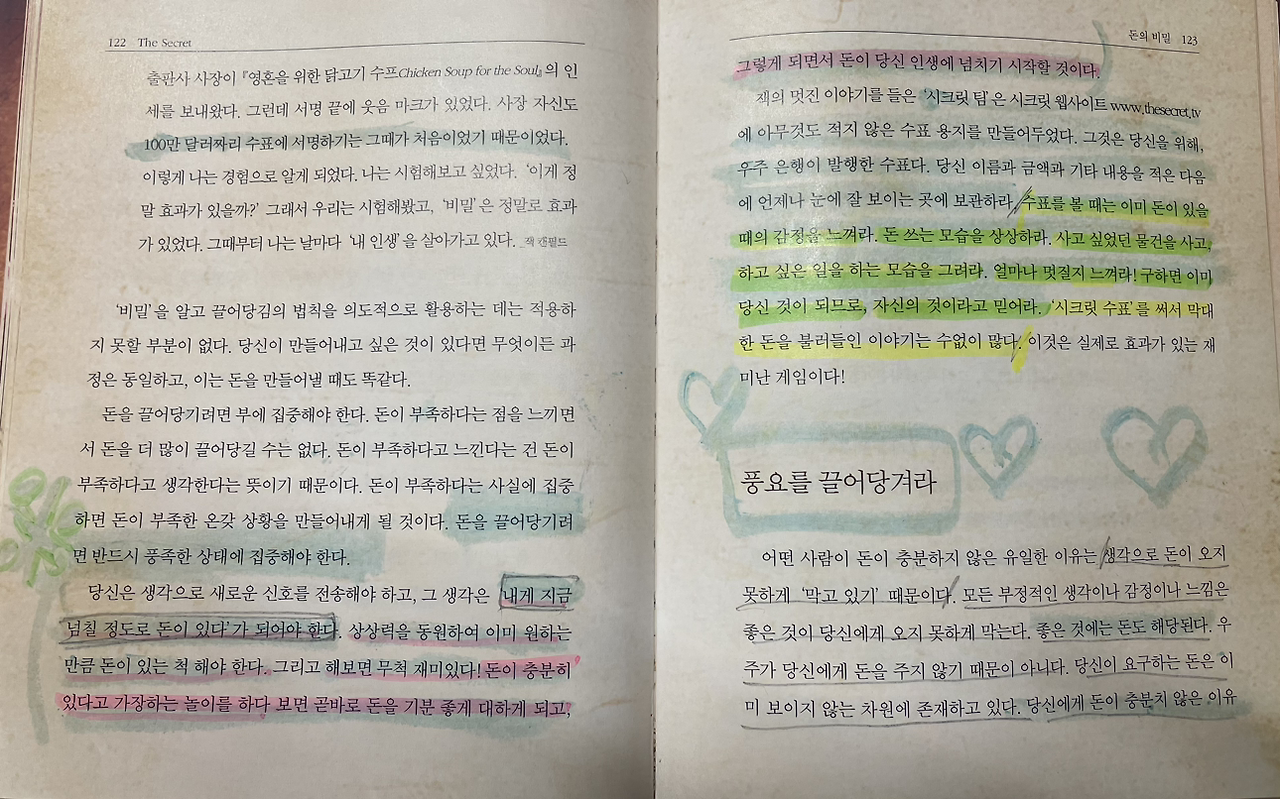 122 The Secret
출판사 사장이 『영혼을 위한 닭고기 수프Chicken Soup for the Soul』의 인
세를 보내왔다. 그런데 서명 끝에 웃음 마크가 있었다. 사장 자신도
100만 달러짜리 수표에 서명하기는 그때가 처음이었기 때문이었다.
이렇게 나는 경험으로 알게 되었다. 나는 시험해보고 싶었다. ‘이게 정
말 효과가 있을까?’ 그래서 우리는 시험해봤고, ‘비밀’은 정말로 효과
가 있었다. 그때부터 나는 날마다 ‘내 인생’을 살아가고 있다. _잭 캔필드
‘비밀’을 알고 끌어당김의 법칙을 의도적으로 활용하는 데는 적용하
지 못할 부분이 없다. 당신이 만들어내고 싶은 것이 있다면 무엇이든 과
정은 동일하고, 이는 돈을 만들어낼 때도 똑같다.
돈을 끌어당기려면 부에 집중해야 한다. 돈이 부족하다는 점을 느끼면
서 돈을 더 많이 끌어당길 수는 없다. 돈이 부족하다고 느낀다는 건 돈이
부족하다고 생각한다는 뜻이기 때문이다. 돈이 부족하다는 사실에 집중
하면 돈이 부족한 온갖 상황을 만들어내게 될 것이다. 돈을 끌어당기려
면 반드시 풍족한 상태에 집중해야 한다.
당신은 생각으로 새로운 신호를 전송해야 하고, 그 생각은 ‘내게 지금
넘칠 정도로 돈이 있다’가 되어야 한다. 상상력을 동원하여 이미 원하는
만큼 돈이 있는 척 해야 한다. 그리고 해보면 무척 재미있다! 돈이 충분히
있다고 가장하는 놀이를 하다 보면 곧바로 돈을 기분 좋게 대하게 되고,
돈의 비밀 123
그렇게 되면서 돈이 당신 인생에 넘치기 시작할 것이다.
잭의 멋진 이야기를 들은 ‘시크릿 팀’은 시크릿 웹사이트 www.thesecret.tv
에 아무것도 적지 않은 수표 용지를 만들어두었다. 그것은 당신을 위해,
우주 은행이 발행한 수표다. 당신 이름과 금액과 기타 내용을 적은 다음
에 언제나 눈에 잘 보이는 곳에 보관하라. 수표를 볼 때는 이미 돈이 있을
때의 감정을 느껴라. 돈 쓰는 모습을 상상하라. 사고 싶었던 물건을 사고,
하고 싶은 일을 하는 모습을 그려라. 얼마나 멋질지 느껴라! 구하면 이미
당신 것이 되므로, 자신의 것이라고 믿어라. ‘시크릿 수표’를 써서 막대
한 돈을 불러들인 이야기는 수없이 많다. 이것은 실제로 효과가 있는 재
미난 게임이다!
풍요를 끌어당겨라
어떤 사람이 돈이 충분하지 않은 유일한 이유는 생각으로 돈이 오지
못하게 ‘막고 있기’ 때문이다. 모든 부정적인 생각이나 감정이나 느낌은
좋은 것이 당신에게 오지 못하게 막는다. 좋은 것에는 돈도 해당된다. 우
주가 당신에게 돈을 주지 않기 때문이 아니다. 당신이 요구하는 돈은 이
미 보이지 않는 차원에 존재하고 있다. 당신에게 돈이 충분치 않은 이유